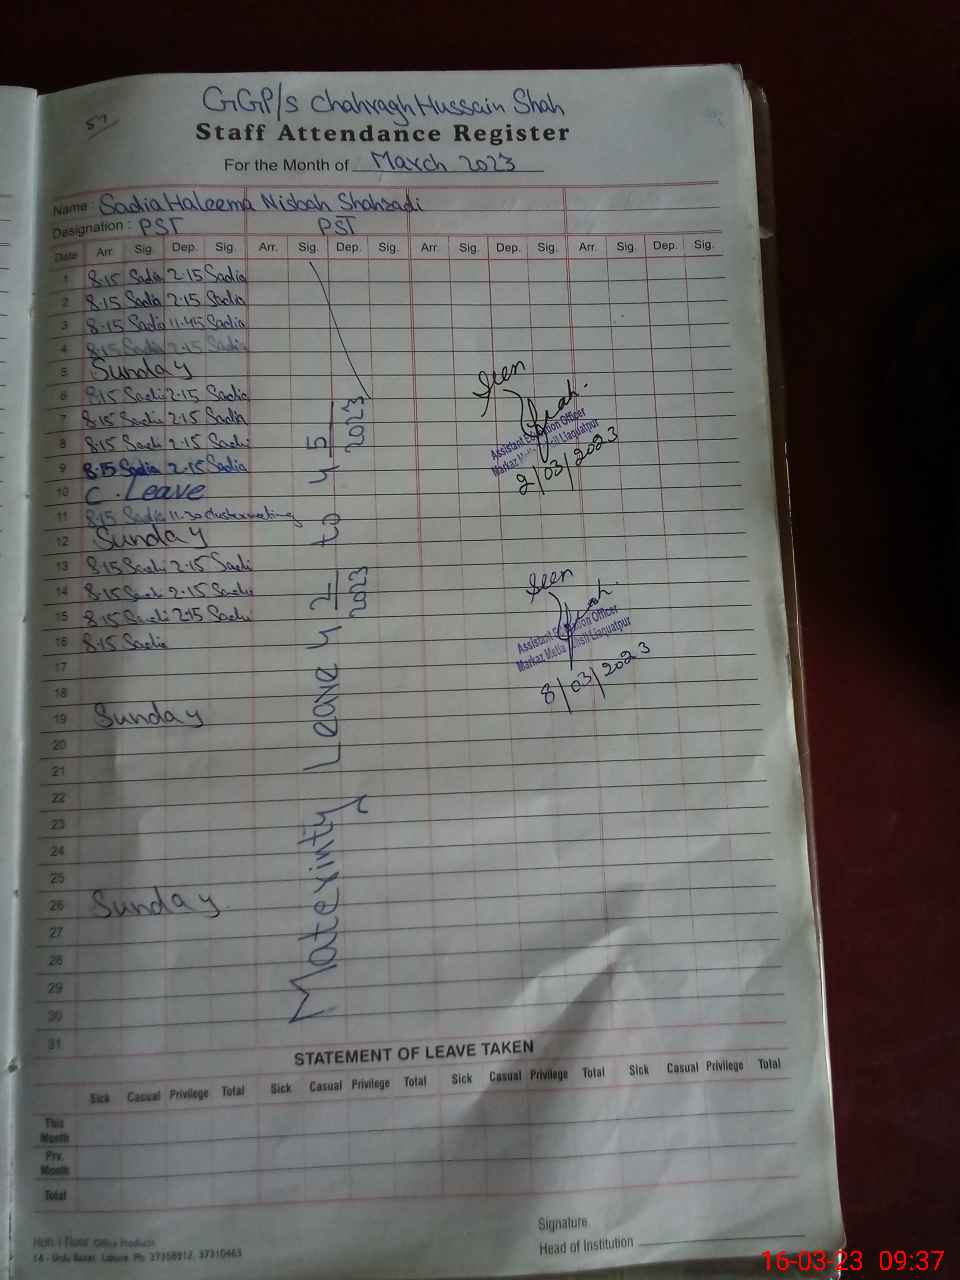 57
GGP/s Chahragh Hussain Shah
Staff Attendance Register
For the Month of March 2023
Name : Sadia Haleema Nisbah Shahzadi
Designation : PST PST
Date Arr. Sig. Dep. Sig. Arr. Sig. Dep. Sig. Arr. Sig. Dep. Sig. Arr. Sig. Dep. Sig.
1 8.15 Sadia 2.15 Sadia
2 8.15 Sadia 2.15 Sadia
3 8.15 Sadia 11.45 Sadia
4 8.15 Sadia 2.15 Sadia
5 Sunday
6 8.15 Sadia 2.15 Sadia
7 8.15 Sadia 2.15 Sadia
8 8.15 Sadi 2.15 Sadi
9 8.15 Sadia 2.15 Sadia
10 C. Leave
11 8.15 Sadia 11.30 clustermeeting
12 Sunday
13 8.15 Sadi 2.15 Sadi
14 8.15 Sadi 2.15 Sadi
15 8.15 Sadi 2.15 Sadi
16 8.15 Sadia
17
18
19 Sunday
20
21
22
23
24
25
26 Sunday
27
28
29
30
31
Materinty Leave 2/2023 to 5/2023
Seen
Assistant Education Officer
Markaz Liaquatpur
2/03/2023
Seen
Assistant Education Officer
Markaz Liaquatpur
8/03/2023
STATEMENT OF LEAVE TAKEN
Sick Casual Privilege Total Sick Casual Privilege Total Sick Casual Privilege Total Sick Casual Privilege Total
This Month
Prv. Month
Total
Signature
Head of Institution
Office Products
14 - Urdu Bazar, Lahore. Ph: 37358912, 37310463
16-03-23 09:37